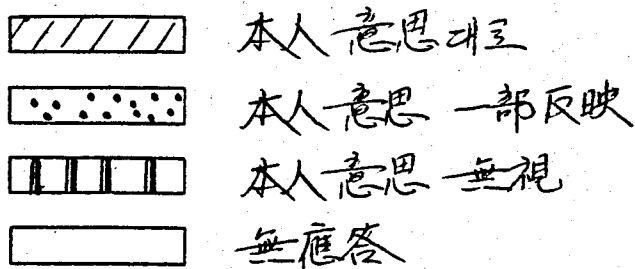 本人 意思대로
本人 意思 一部反映
本人 意思 無視
無應答